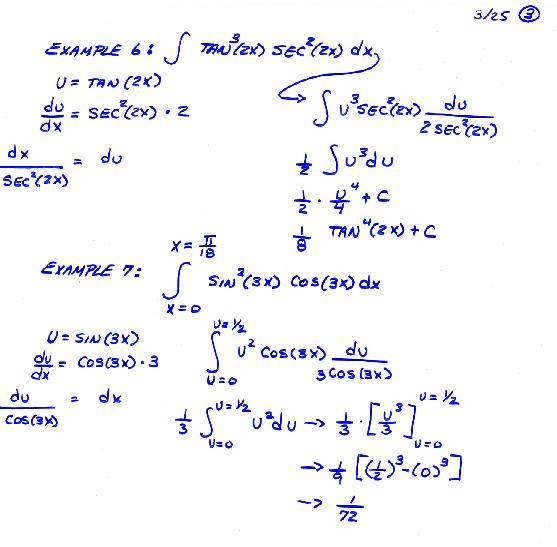 3/25 ③
EXAMPLE 6: ∫ TAN³(2x) SEC²(2x) dx
U = TAN(2x)
du/dx = SEC²(2x) · 2
dx/SEC²(2x) = du
∫ U³ SEC²(2x) du/2SEC²(2x)
1/2 ∫ U³ du
1/2 · U⁴/4 + C
1/8 TAN⁴(2x) + C
EXAMPLE 7: ∫_{x=0}^{x=π/18} SIN²(3x) COS(3x) dx
U = SIN(3x)
du/dx = COS(3x) · 3
du/COS(3x) = dx
∫_{U=0}^{U=1/2} U² COS(3x) du/3COS(3x)
1/3 ∫_{U=0}^{U=1/2} U² du → 1/3 · [U³/3]_{U=0}^{U=1/2}
→ 1/9 [(1/2)³ - (0)³]
→ 1/72